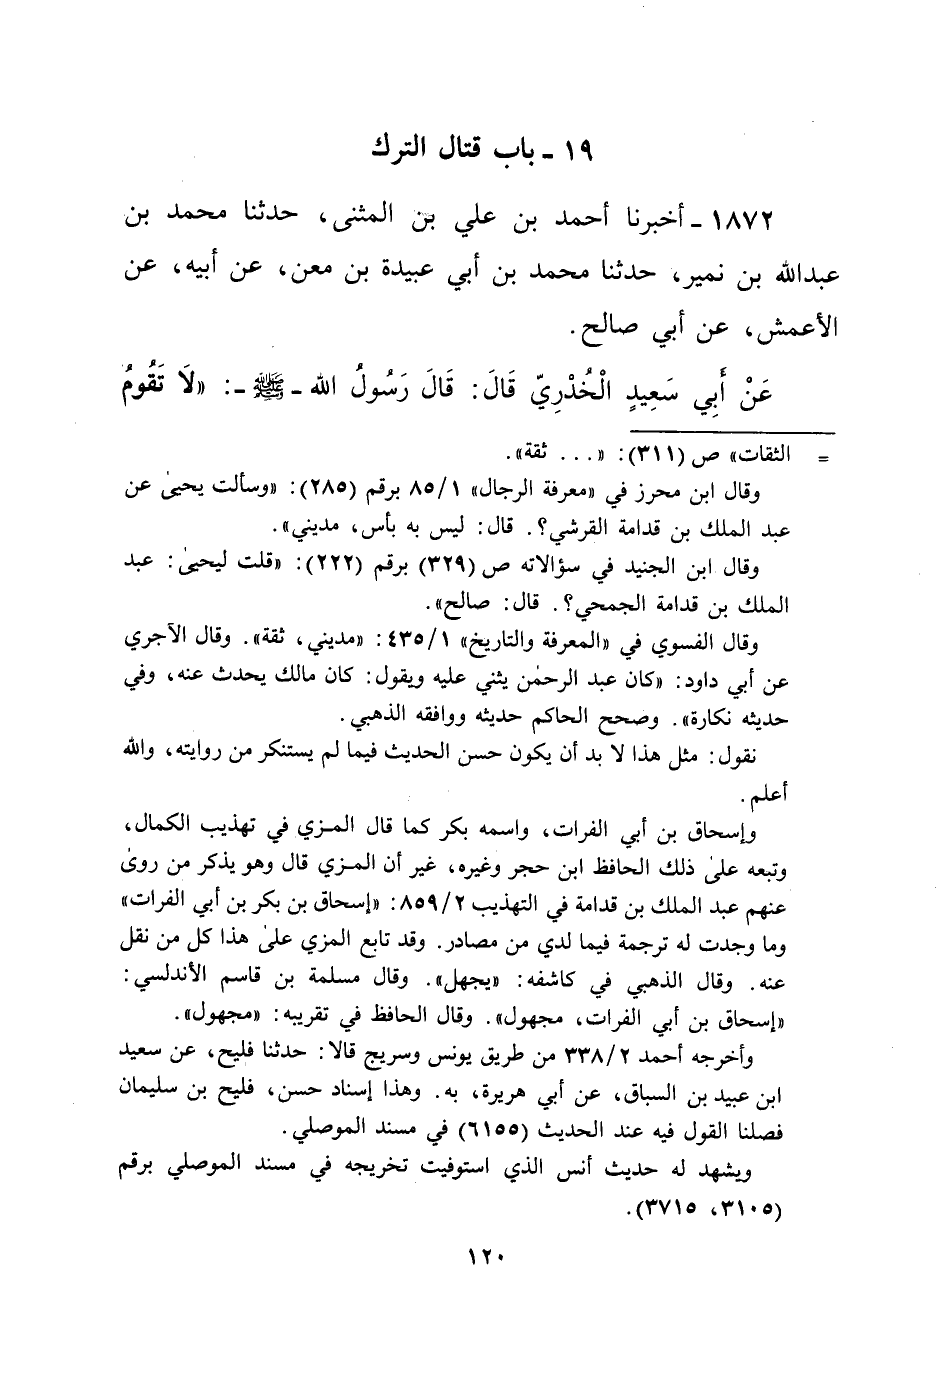 ١٩ - باب قتال الترك
١٨٧٢ - أخبرنا أحمد بن علي بن المثنى، حدثنا محمد بن
عبدالله بن نمير، حدثنا محمد بن أبي عبيدة بن معن، عن أبيه، عن
الأعمش، عن أبي صالح.
عَنْ أَبِي سَعِيدٍ الْخُدْرِيّ قَالَ: قَالَ رَسُولُ الله - ﷺ -: «لَا تَقُومُ
= الثقات» ص (٣١١): «... ثقة».
وقال ابن محرز في «معرفة الرجال» ٨٥/١ برقم (٢٨٥): «وسألت يحيىٰ عن
عبد الملك بن قدامة القرشي؟. قال: ليس به بأس، مديني».
وقال ابن الجنيد في سؤالاته ص (٣٢٩) برقم (٢٢٢): «قلت ليحيىٰ: عبد
الملك بن قدامة الجمحي؟. قال: صالح».
وقال الفسوي في «المعرفة والتاريخ» ٤٣٥/١: «مديني، ثقة». وقال الآجري
عن أبي داود: «كان عبد الرحمٰن يثني عليه ويقول: كان مالك يحدث عنه، وفي
حديثه نكارة». وصحح الحاكم حديثه ووافقه الذهبي.
نقول: مثل هذا لا بد أن يكون حسن الحديث فيما لم يستنكر من روايته، والله
أعلم.
وإسحاق بن أبي الفرات، واسمه بكر كما قال المزي في تهذيب الكمال،
وتبعه علىٰ ذلك الحافظ ابن حجر وغيره، غير أن المزي قال وهو يذكر من روىٰ
عنهم عبد الملك بن قدامة في التهذيب ٨٥٩/٢: «إسحاق بن بكر بن أبي الفرات»
وما وجدت له ترجمة فيما لدي من مصادر. وقد تابع المزي علىٰ هذا كل من نقل
عنه. وقال الذهبي في كاشفه: «يجهل». وقال مسلمة بن قاسم الأندلسي:
«إسحاق بن أبي الفرات، مجهول». وقال الحافظ في تقريبه: «مجهول».
وأخرجه أحمد ٣٣٨/٢ من طريق يونس وسريج قالا: حدثنا فليح، عن سعيد
ابن عبيد بن السباق، عن أبي هريرة، به. وهذا إسناد حسن، فليح بن سليمان
فصلنا القول فيه عند الحديث (٦١٥٥) في مسند الموصلي.
ويشهد له حديث أنس الذي استوفيت تخريجه في مسند الموصلي برقم
(٣١٠٥، ٣٧١٥).
١٢٠